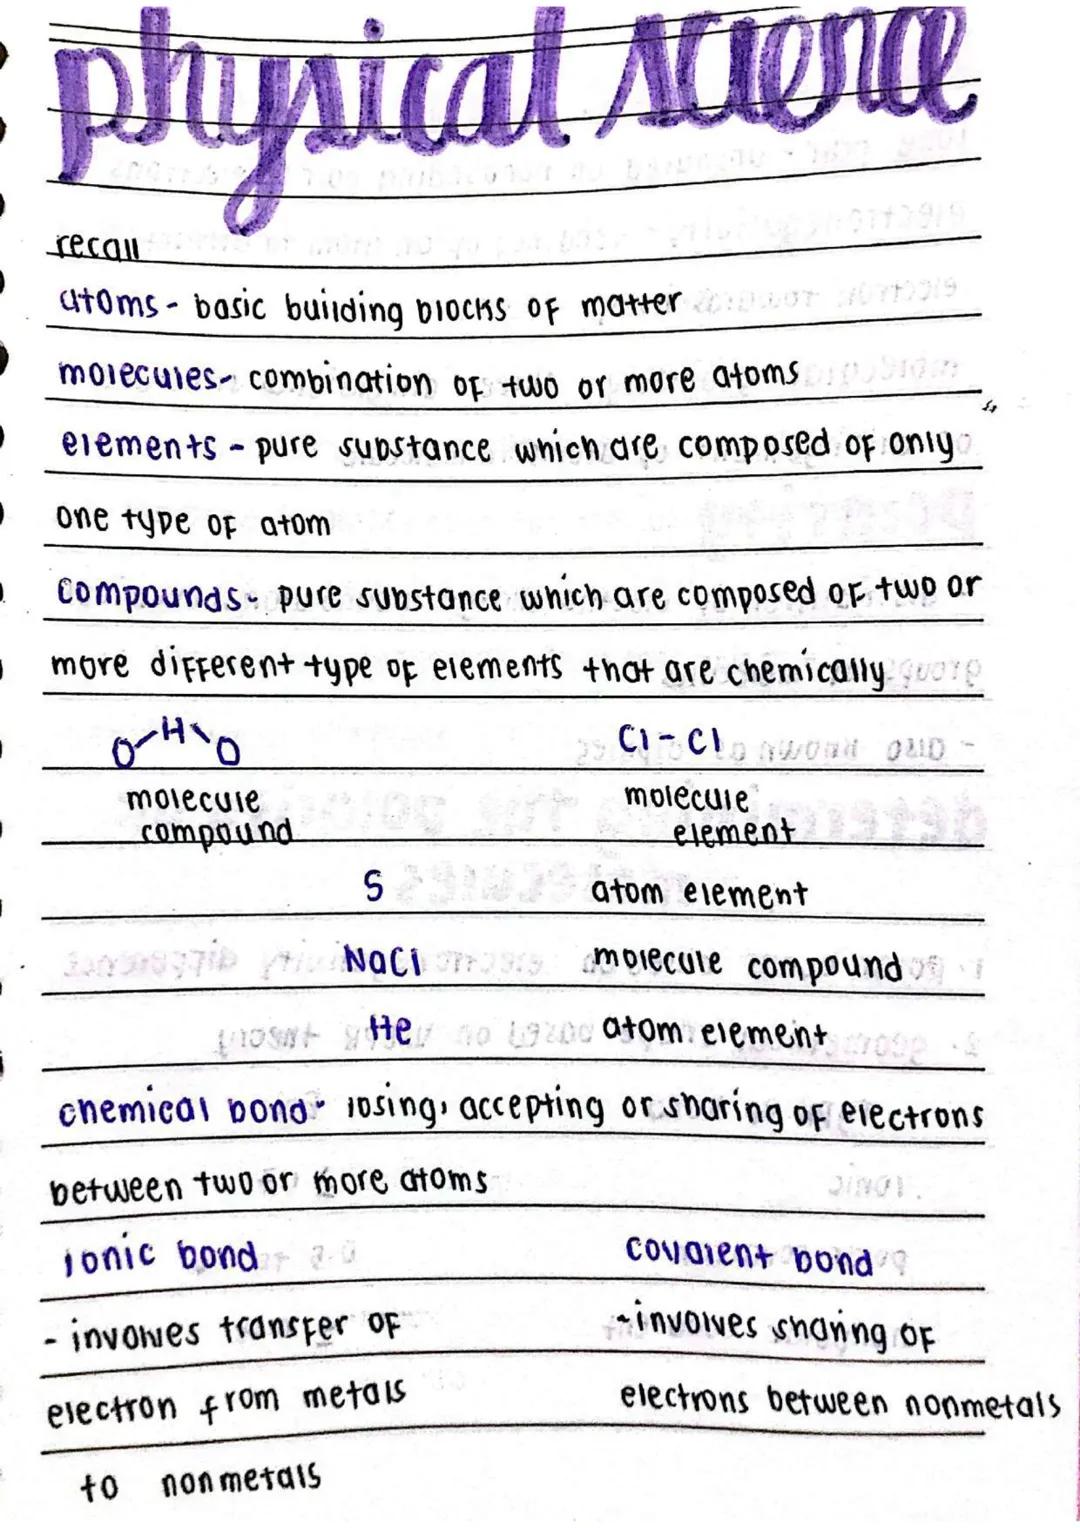 physical science
recall
atoms - basic building blocks of matter
molecules - combination of two or more atoms
elements - pure substance which are composed of only
one type of atom
compounds - pure substance which are composed of two or
more different type of elements that are chemically
O-H-O Cl-Cl
molecule molecule
compound element
S atom element
NaCl molecule compound
He atom element
chemical bond - losing, accepting or sharing of electrons
between two or more atoms
ionic bond covalent bond
- involves transfer of - involves sharing of
electron from metals electrons between nonmetals
to nonmetals